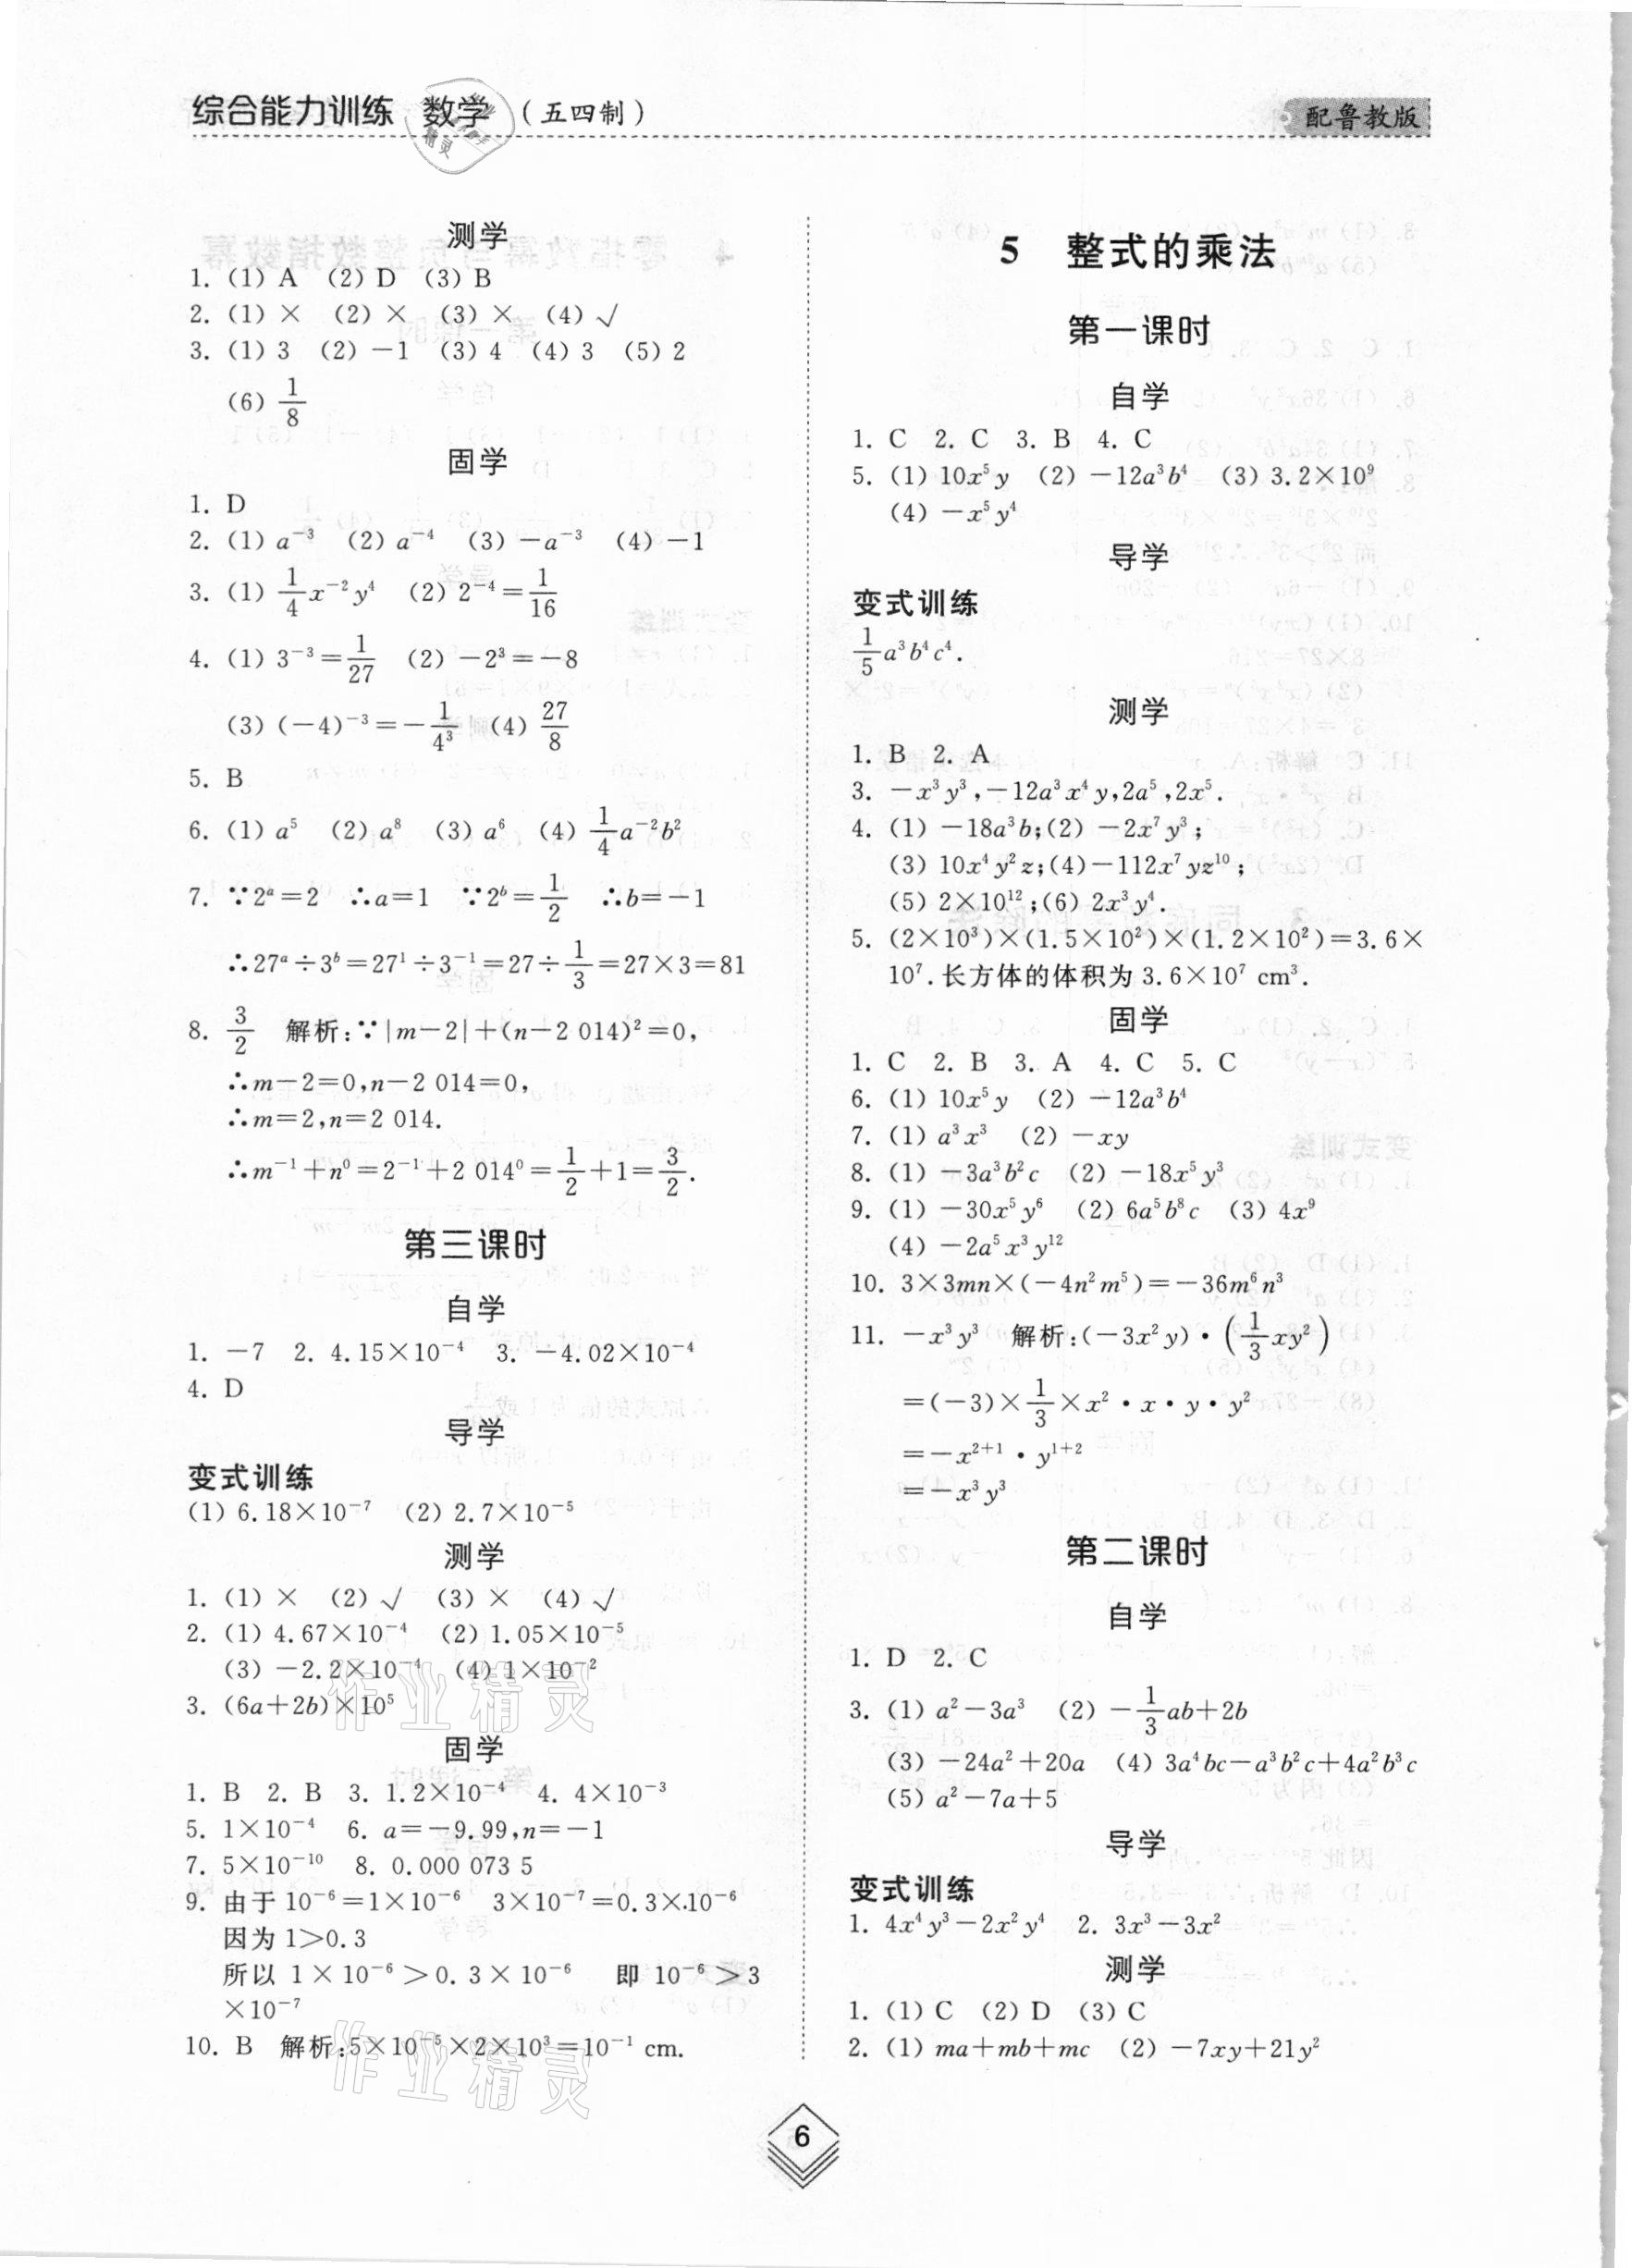 综合能力训练 数学 (五四制)
配鲁教版
测学
1. (1) A (2) D (3) B
2. (1) × (2) × (3) × (4) √
3. (1) 3 (2) －1 (3) 4 (4) 3 (5) 2
(6) 1/8
固学
1. D
2. (1) a⁻³ (2) a⁻⁴ (3) －a⁻³ (4) －1
3. (1) 1/4 x⁻²y⁴ (2) 2⁻⁴＝1/16
4. (1) 3⁻³＝1/27 (2) －2³＝－8
(3) (－4)⁻³＝－1/4³ (4) 27/8
5. B
6. (1) a⁵ (2) a⁸ (3) a⁶ (4) 1/4 a⁻²b²
7. ∵2ᵃ＝2 ∴a＝1 ∵2ᵇ＝1/2 ∴b＝－1
∴27ᵃ÷3ᵇ＝27¹÷3⁻¹＝27÷1/3＝27×3＝81
8. 3/2 解析:∵|m－2|＋(n－2 014)²＝0,
∴m－2＝0,n－2 014＝0,
∴m＝2,n＝2 014.
∴m⁻¹＋n⁰＝2⁻¹＋2 014⁰＝1/2＋1＝3/2.
第三课时
自学
1. －7 2. 4.15×10⁻⁴ 3. －4.02×10⁻⁴
4. D
导学
变式训练
(1) 6.18×10⁻⁷ (2) 2.7×10⁻⁵
测学
1. (1) × (2) √ (3) × (4) √
2. (1) 4.67×10⁻⁴ (2) 1.05×10⁻⁵
(3) －2.2×10⁻⁴ (4) 1×10⁻²
3. (6a＋2b)×10⁵
固学
1. B 2. B 3. 1.2×10⁻⁴ 4. 4×10⁻³
5. 1×10⁻⁴ 6. a＝－9.99,n＝－1
7. 5×10⁻¹⁰ 8. 0.000 073 5
9. 由于 10⁻⁶＝1×10⁻⁶ 3×10⁻⁷＝0.3×10⁻⁶
因为 1＞0.3
所以 1×10⁻⁶＞0.3×10⁻⁶ 即 10⁻⁶＞3
×10⁻⁷
10. B 解析:5×10⁻⁵×2×10³＝10⁻¹ cm.
5 整式的乘法
第一课时
自学
1. C 2. C 3. B 4. C
5. (1) 10x⁵y (2) －12a³b⁴ (3) 3.2×10⁹
(4) －x⁵y⁴
导学
变式训练
1/5 a³b⁴c⁴.
测学
1. B 2. A
3. －x³y³,－12a³x⁴y,2a⁵,2x⁵.
4. (1) －18a³b;(2) －2x⁷y³;
(3) 10x⁴y²z;(4)－112x⁷yz¹⁰;
(5) 2×10¹²;(6) 2x³y⁴.
5. (2×10³)×(1.5×10²)×(1.2×10²)＝3.6×
10⁷.长方体的体积为 3.6×10⁷ cm³.
固学
1. C 2. B 3. A 4. C 5. C
6. (1) 10x⁵y (2) －12a³b⁴
7. (1) a³x³ (2) －xy
8. (1) －3a³b²c (2) －18x⁵y³
9. (1) －30x⁵y⁶ (2) 6a⁵b⁸c (3) 4x⁹
(4) －2a⁵x³y¹²
10. 3×3mn×(－4n²m⁵)＝－36m⁶n³
11. －x³y³ 解析:(－3x²y)·(1/3 xy²)
＝(－3)×1/3×x²·x·y·y²
＝－x²⁺¹·y¹⁺²
＝－x³y³
第二课时
自学
1. D 2. C
3. (1) a²－3a³ (2) －1/3 ab＋2b
(3) －24a²＋20a (4) 3a⁴bc－a³b²c＋4a²b³c
(5) a²－7a＋5
导学
变式训练
1. 4x⁴y³－2x²y⁴ 2. 3x³－3x²
测学
1. (1) C (2) D (3) C
2. (1) ma＋mb＋mc (2) －7xy＋21y²
6
作业精灵
作业精灵